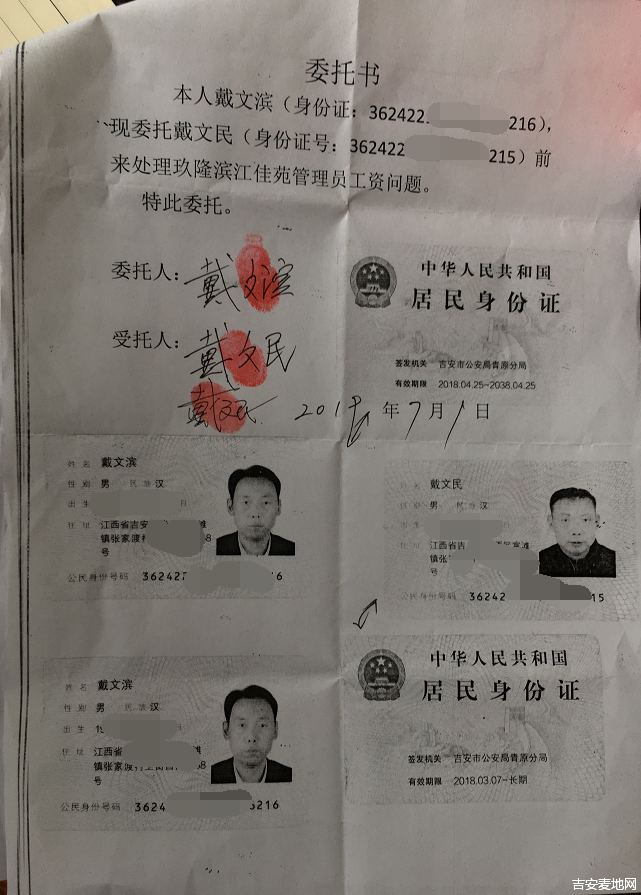 委托书
本人戴文滨（身份证：362422 216），
现委托戴文民（身份证号：362422 215）前
来处理玖隆滨江佳苑管理员工资问题。
特此委托。
委托人：戴文滨
受托人：戴文民
戴文
201 年7月1日
中华人民共和国
居民身份证
签发机关 吉安市公安局青原分局
有效期限 2018.04.25-2038.04.25
姓名 戴文滨
性别 男 民族 汉
出生 日
住址 江西省吉安 滩
镇张家渡村 8
号
公民身份号码 362422 16
戴文民
性别 男 民族 汉
出生
住址 江西省吉 家滩
镇张家
号
公民身份号码 36242 15
姓名 戴文滨
性别 男 民族 汉
出生
住址 江西省 滩
镇张家渡村 8
号
公民身份号码 3624 6216
中华人民共和国
居民身份证
签发机关 吉安市公安局青原分局
有效期限 2018.03.07-长期
吉安麦地网